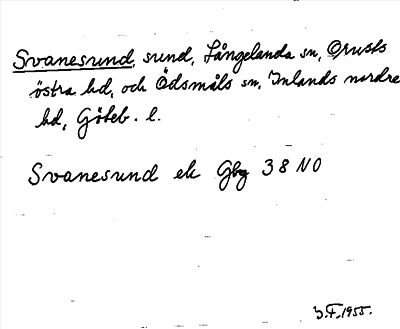 Svanesund, sund, Långelanda sn, Orusts
östra hd, och Ödsmåls sn, Inlands nordre
hd, Göteb. l.
Svanesund ek Gbg 38 NO
1955.